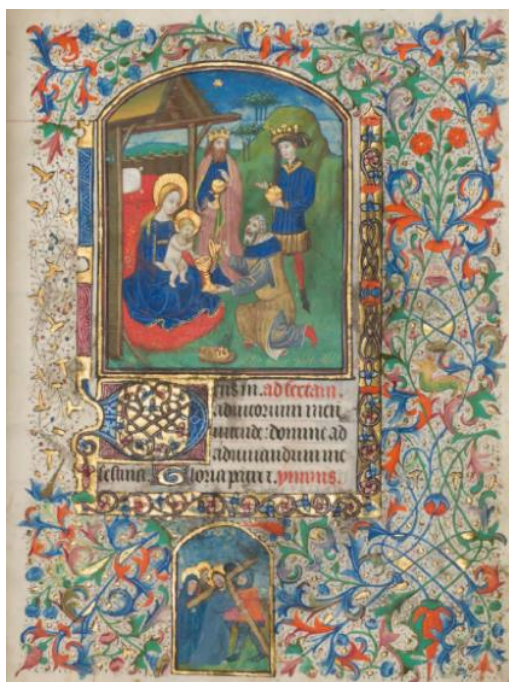 Deus in. ad sextam
adiutorium meu
intende: domine ad
adiuuandum me
festina. Gloria patri. ymnus.